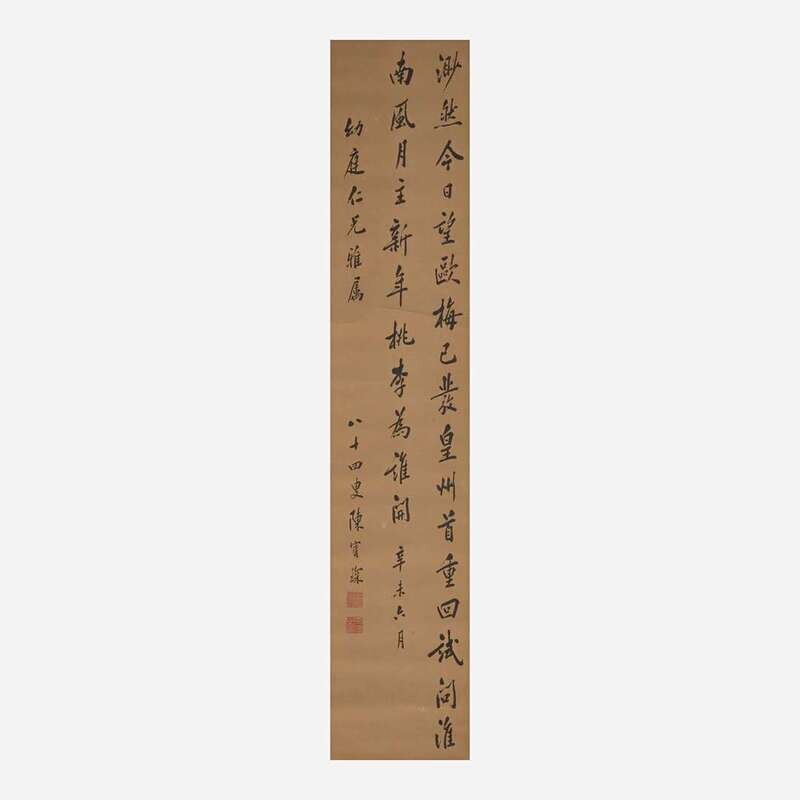 渺然今日望歐梅已發皇州首重回試問淮
南風月主新年桃李為誰開 辛未六月
幼庭仁兄雅属 八十四叟陳寶琛